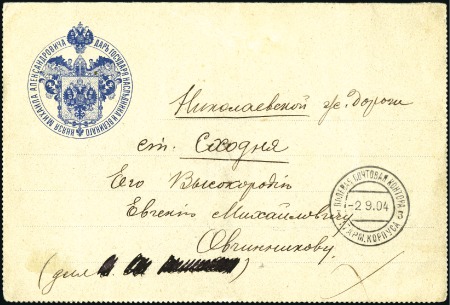 ДАРЪ ГОСУДАРЯ НАСЛѢДНИКА И ВЕЛИКАГО КНЯЗЯ МИХАИЛА АЛЕКСАНДРОВИЧА
Николаевской ж. Дороги
ст. Сходня
Его Высокородію
Евгенію Михайловичу
Овчинникову
ПОЛЕВАЯ ПОЧТОВАЯ КОНТОРА
-2 9.04
АРМ. КОРПУСА
(для